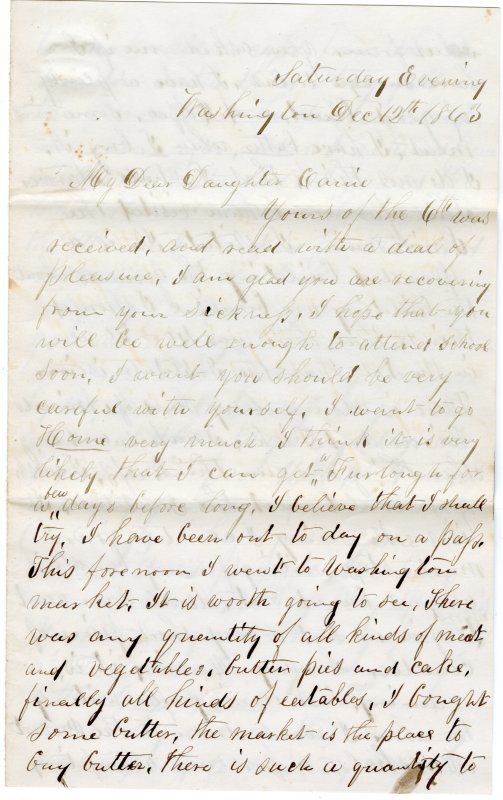 Saturday Evening
Washington Dec 12th 1863
My Dear Daughter Carrie
Yours of the 6th was
received, and read with a deal of
pleasure. I am glad you are recovering
from your sickness. I hope that you
will be well enough to attend school
soon. I want you should be very
careful with yourself. I want to go
Home very much I think it is very
likely that I can get a Furlough for
a few days before long. I believe that I shall
try. I have been out to day on a pass.
This forenoon I went to Washington
market. It is worth going to see, There
was any quantity of all kinds of meat
and vegetables. butter pies and cake,
finally all kinds of eatables. I bought
some butter, the market is the place to
buy butter. there is such a quantity to